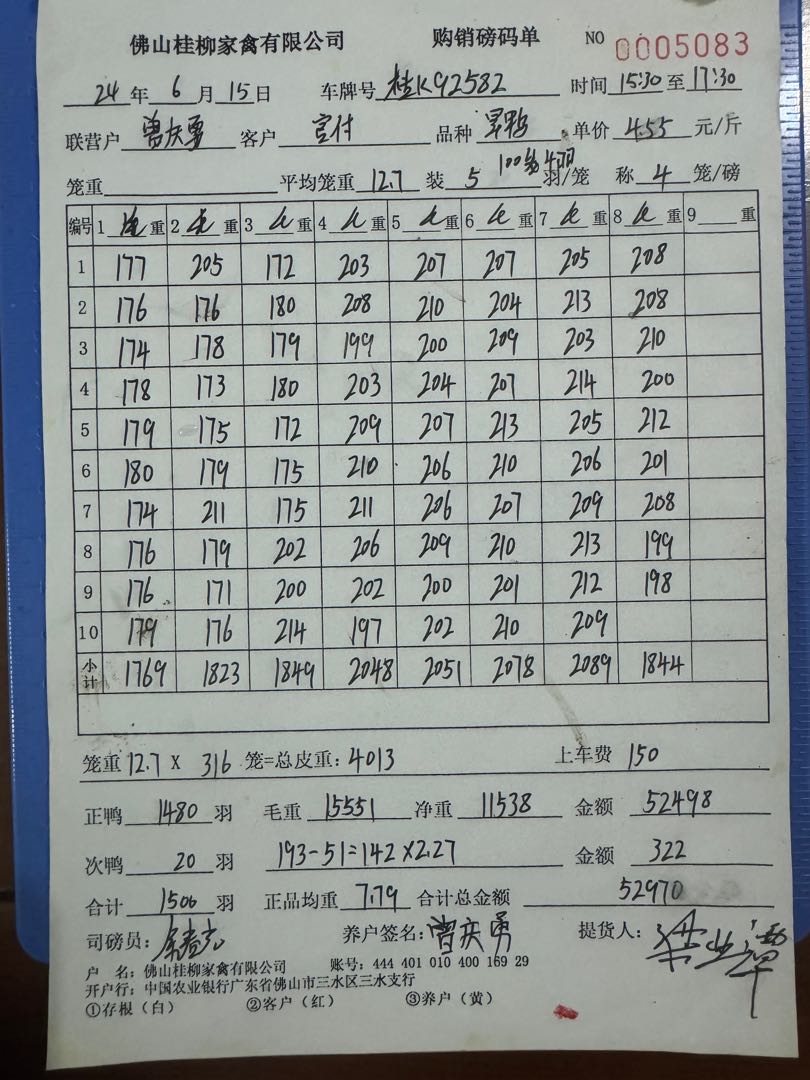 佛山桂柳家禽有限公司 购销磅码单 NO 0005083
24年6月15日 车牌号 桂K92582 时间 15:30 至 17:30
联营户 曾庆勇 客户 宫付 品种 单价 4.55 元/斤
笼重 平均笼重 12.7 装 5 100笼4羽 羽/笼 称 4 笼/磅
编号 1 毛 重 2 毛 重 3 毛 重 4 毛 重 5 毛 重 6 毛 重 7 毛 重 8 毛 重 9 重
1 177 205 172 203 207 207 205 208
2 176 176 180 208 210 204 213 208
3 174 178 179 199 200 209 203 210
4 178 173 180 203 204 207 214 200
5 179 175 172 209 207 213 205 212
6 180 179 175 210 206 210 206 201
7 174 211 175 211 206 207 209 208
8 176 179 202 206 209 210 213 199
9 176 171 200 202 200 201 212 198
10 179 176 214 197 202 210 209
小计 1769 1823 1849 2048 2051 2078 2089 1844
笼重 12.7 X 316 笼=总皮重: 4013 上车费 150
正鸭 1480 羽 毛重 15551 净重 11538 金额 52498
次鸭 20 羽 193-51=142×2.27 金额 322
合计 1500 羽 正品均重 7.79 合计总金额 52970
司磅员: 养户签名: 曾庆勇 提货人:
户 名: 佛山桂柳家禽有限公司 账号: 444 401 010 400 169 29
开户行: 中国农业银行广东省佛山市三水区三水支行
①存根(白) ②客户(红) ③养户(黄)